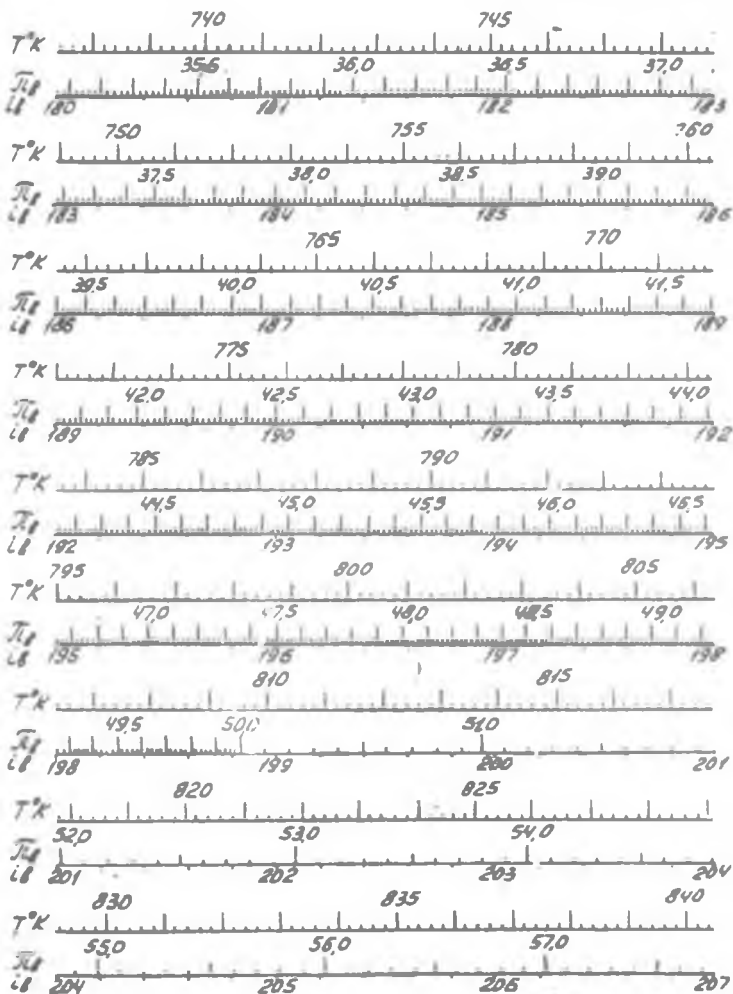 740 745
T°K
35,5 36,0 36,5 37,0
πв
iв 180 181 182 183
750 755 760
T°K
37,5 38,0 38,5 39,0
πв
iв 183 184 185 186
765 770
T°K
39,5 40,0 40,5 41,0 41,5
πв
iв 186 187 188 189
775 780
T°K
42,0 42,5 43,0 43,5 44,0
πв
iв 189 190 191 192
785 790
T°K
44,5 45,0 45,5 46,0 46,5
πв
iв 192 193 194 195
795 800 805
T°K
47,0 47,5 48,0 48,5 49,0
πв
iв 195 196 197 198
810 815
T°K
49,5 50,0 51,0
πв
iв 198 199 200 201
820 825
T°K
52,0 53,0 54,0
πв
iв 201 202 203 204
830 835 840
T°K
55,0 56,0 57,0
πв
iв 204 205 206 207